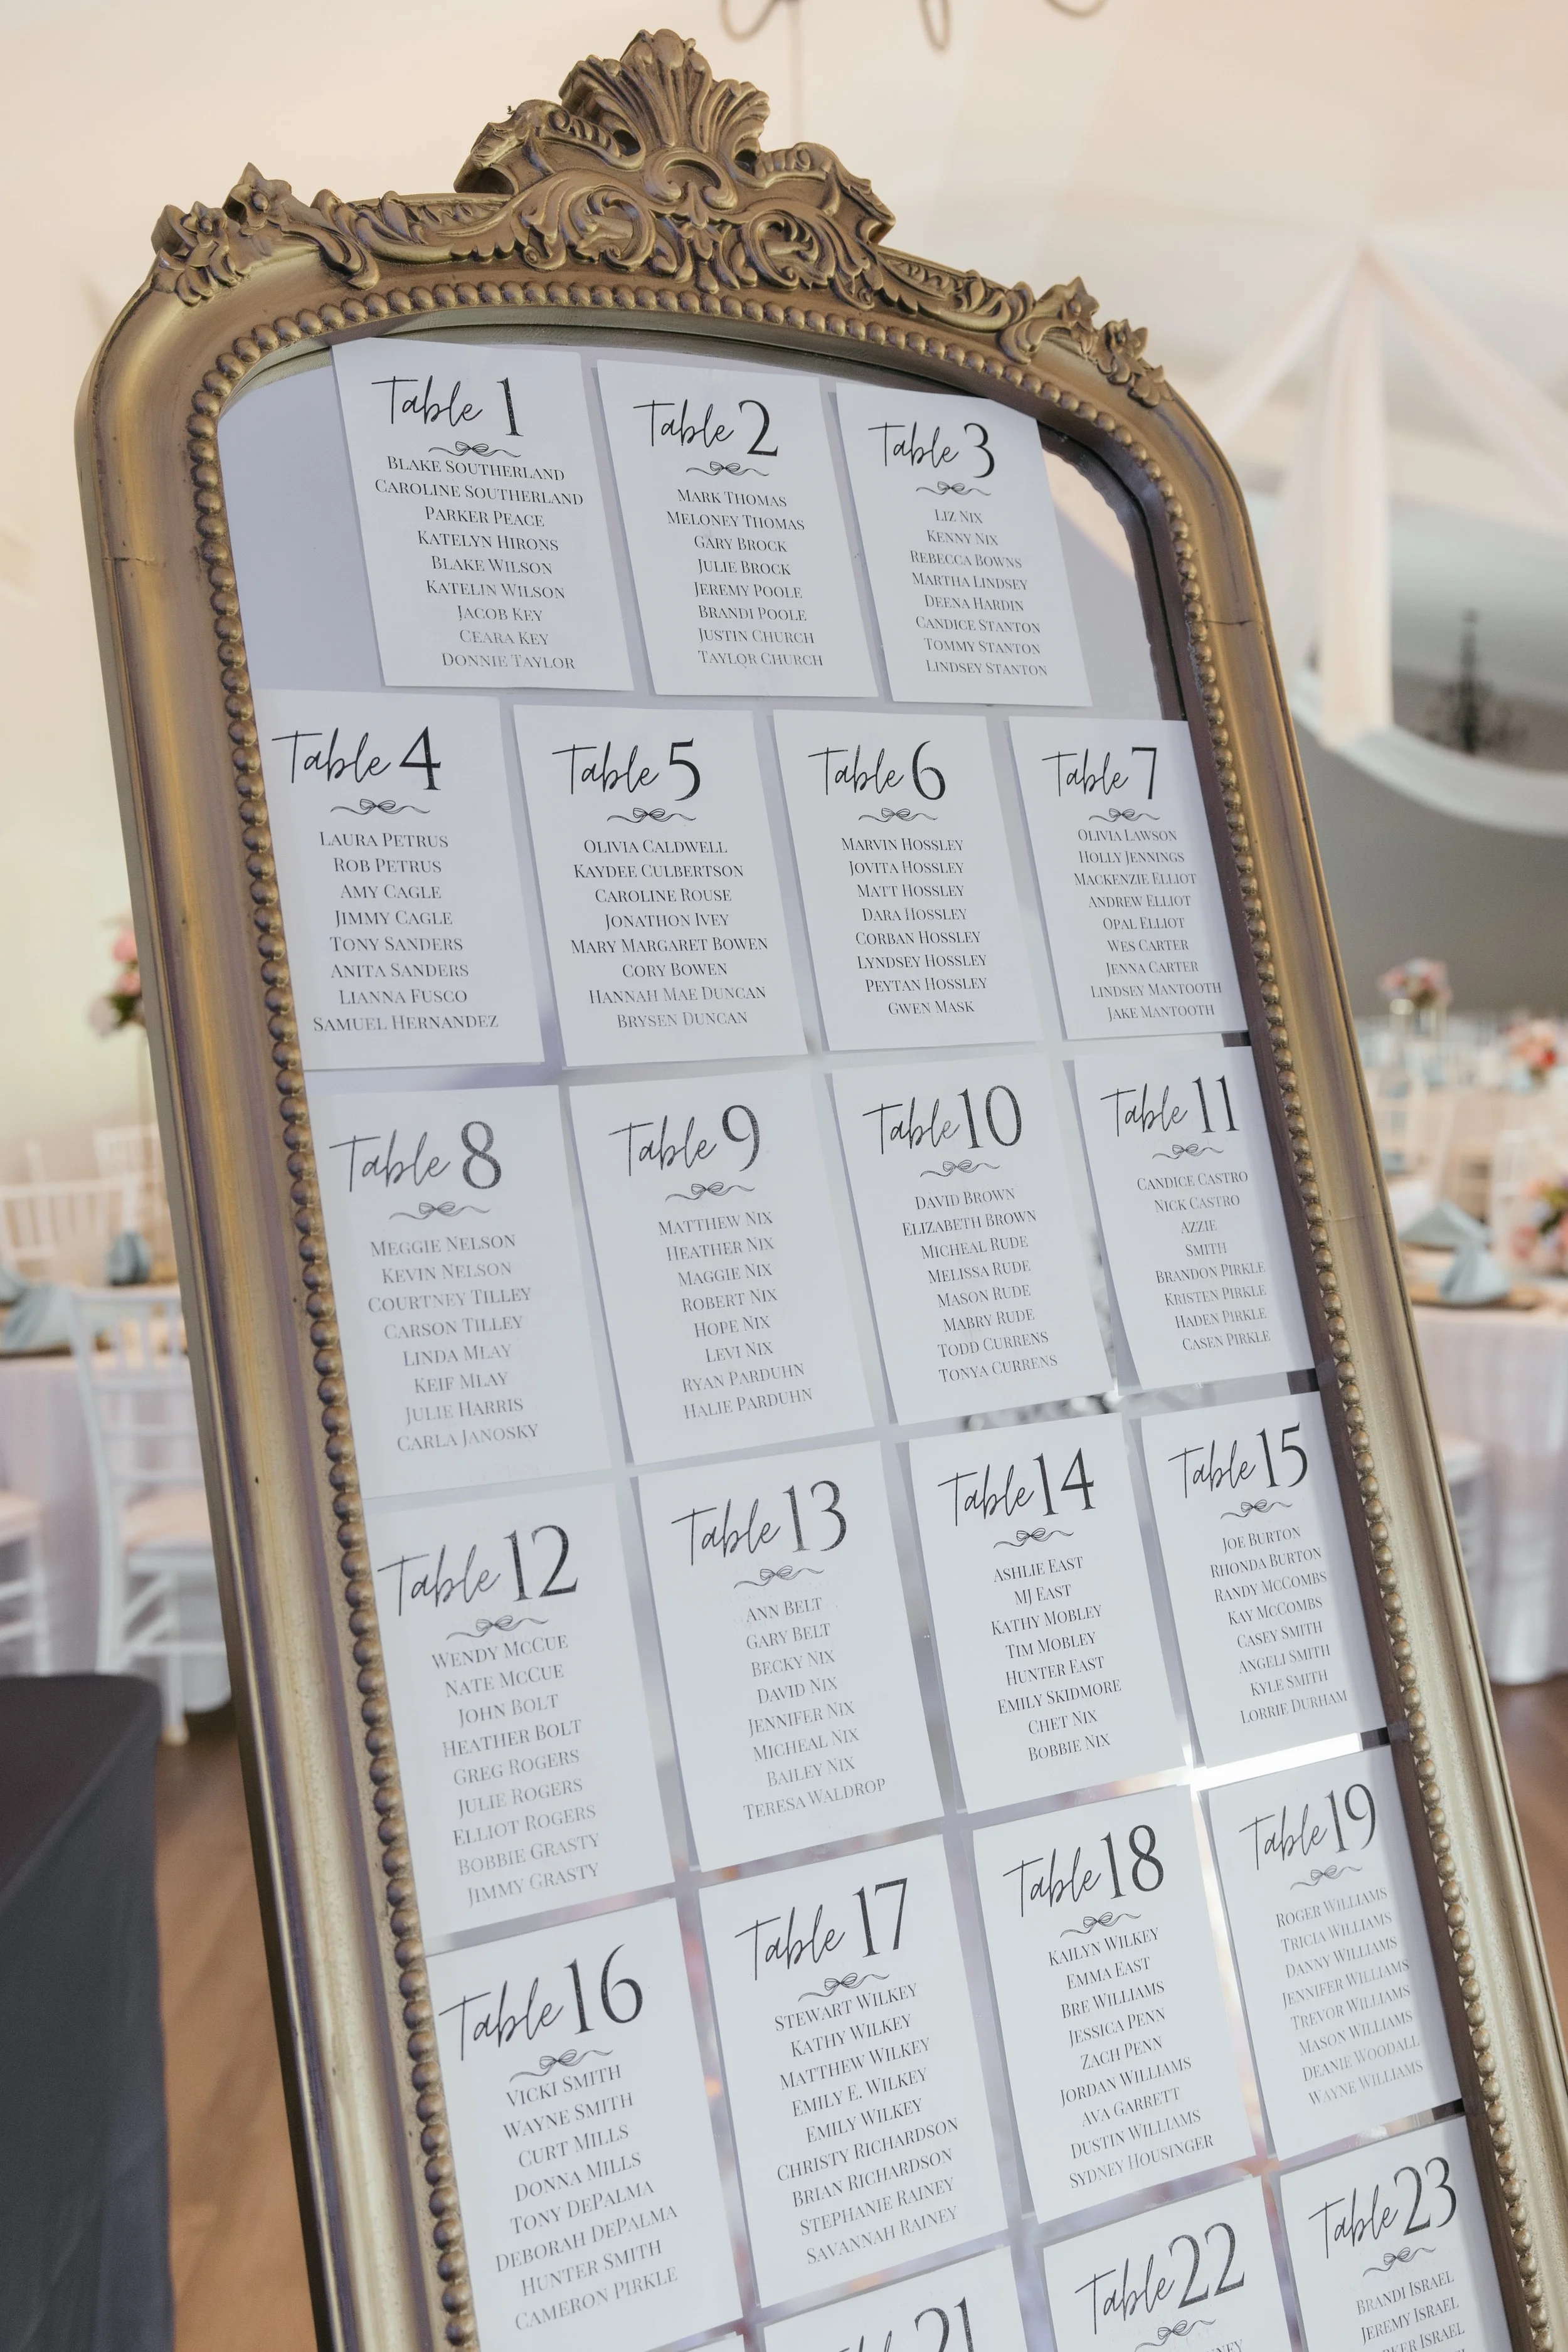 Table 1
BLAKE SOUTHERLAND
CAROLINE SOUTHERLAND
PARKER PEACE
KATELYN HIRONS
BLAKE WILSON
KATELIN WILSON
JACOB KEY
CEARA KEY
DONNIE TAYLOR
Table 2
MARK THOMAS
MELONEY THOMAS
GARY BROCK
JULIE BROCK
JEREMY POOLE
BRANDI POOLE
JUSTIN CHURCH
TAYLOR CHURCH
Table 3
LIZ NIX
KENNY NIX
REBECCA BOWNS
MARTHA LINDSEY
DEENA HARDIN
CANDICE STANTON
TOMMY STANTON
LINDSEY STANTON
Table 4
LAURA PETRUS
ROB PETRUS
AMY CAGLE
JIMMY CAGLE
TONY SANDERS
ANITA SANDERS
LIANNA FUSCO
SAMUEL HERNANDEZ
Table 5
OLIVIA CALDWELL
KAYDEE CULBERTSON
CAROLINE ROUSE
JONATHON IVEY
MARY MARGARET BOWEN
CORY BOWEN
HANNAH MAE DUNCAN
BRYSEN DUNCAN
Table 6
MARVIN HOSSLEY
JOVITA HOSSLEY
MATT HOSSLEY
DARA HOSSLEY
CORBAN HOSSLEY
LYNDSEY HOSSLEY
PEYTAN HOSSLEY
GWEN MASK
Table 7
OLIVIA LAWSON
HOLLY JENNINGS
MACKENZIE ELLIOT
ANDREW ELLIOT
OPAL ELLIOT
WES CARTER
JENNA CARTER
LINDSEY MANTOOTH
JAKE MANTOOTH
Table 8
MEGGIE NELSON
KEVIN NELSON
COURTNEY TILLEY
CARSON TILLEY
LINDA MLAY
KEIF MLAY
JULIE HARRIS
CARLA JANOSKY
Table 9
MATTHEW NIX
HEATHER NIX
MAGGIE NIX
ROBERT NIX
HOPE NIX
LEVI NIX
RYAN PARDUHN
HALIE PARDUHN
Table 10
DAVID BROWN
ELIZABETH BROWN
MICHEAL RUDE
MELISSA RUDE
MASON RUDE
MABRY RUDE
TODD CURRENS
TONYA CURRENS
Table 11
CANDICE CASTRO
NICK CASTRO
AZZIE
SMITH
BRANDON PIRKLE
KRISTEN PIRKLE
HADEN PIRKLE
CASEN PIRKLE
Table 12
WENDY MCCUE
NATE MCCUE
JOHN BOLT
HEATHER BOLT
GREG ROGERS
JULIE ROGERS
ELLIOT ROGERS
BOBBIE GRASTY
JIMMY GRASTY
Table 13
ANN BELT
GARY BELT
BECKY NIX
DAVID NIX
JENNIFER NIX
MICHEAL NIX
BAILEY NIX
TERESA WALDROP
Table 14
ASHLIE EAST
MJ EAST
KATHY MOBLEY
TIM MOBLEY
HUNTER EAST
EMILY SKIDMORE
CHET NIX
BOBBIE NIX
Table 15
JOE BURTON
RHONDA BURTON
RANDY MCCOMBS
KAY MCCOMBS
CASEY SMITH
ANGELI SMITH
KYLE SMITH
LORRIE DURHAM
Table 16
VICKI SMITH
WAYNE SMITH
CURT MILLS
DONNA MILLS
TONY DEPALMA
DEBORAH DEPALMA
HUNTER SMITH
CAMERON PIRKLE
Table 17
STEWART WILKEY
KATHY WILKEY
MATTHEW WILKEY
EMILY E. WILKEY
EMILY WILKEY
CHRISTY RICHARDSON
BRIAN RICHARDSON
STEPHANIE RAINEY
SAVANNAH RAINEY
Table 18
KAILYN WILKEY
EMMA EAST
BRE WILLIAMS
JESSICA PENN
ZACH PENN
JORDAN WILLIAMS
AVA GARRETT
DUSTIN WILLIAMS
SYDNEY HOUSINGER
Table 19
ROGER WILLIAMS
TRICIA WILLIAMS
DANNY WILLIAMS
JENNIFER WILLIAMS
TREVOR WILLIAMS
MASON WILLIAMS
DEANIE WOODALL
WAYNE WILLIAMS
Table 21
Table 22
Table 23
BRANDI ISRAEL
JEREMY ISRAEL
ISRAEL